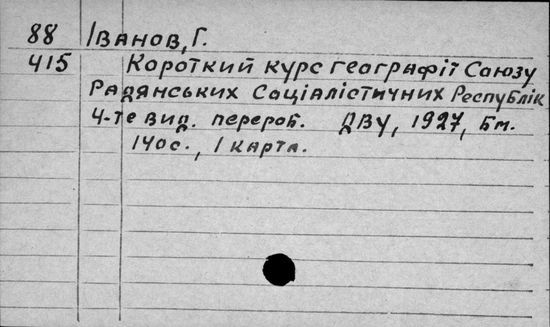 88 Іванов, Г.
415 Короткий курс географії Союзу
Радянських Соціалістичних Республік
4-те вид. перероб. ДВУ, 1927, Бм.
140с., 1 карта.